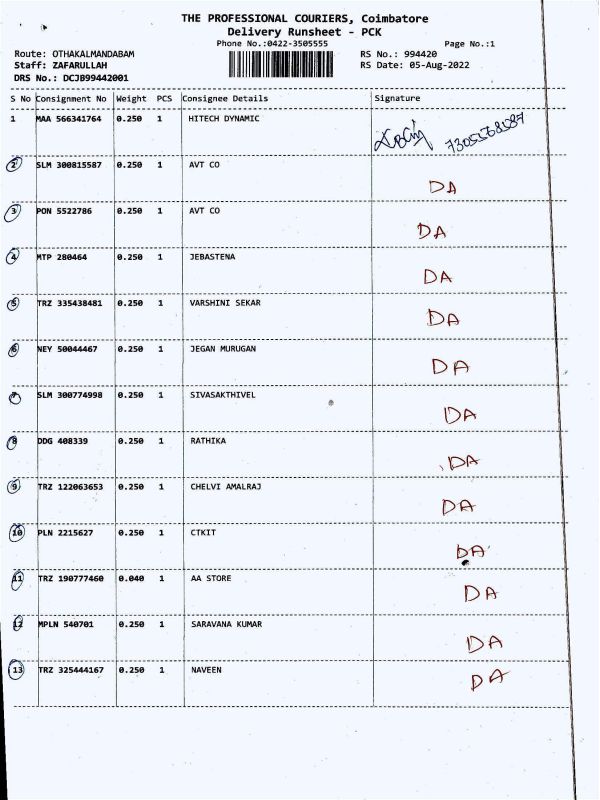 THE PROFESSIONAL COURIERS, Coimbatore
Delivery Runsheet - PCK
Phone No.:0422-3505555
Page No.:1
Route: OTHAKALMANDABAM
RS No.: 994420
Staff: ZAFARULLAH
RS Date: 05-Aug-2022
DRS No.: DCJB99442001
S No Consignment No Weight PCS Consignee Details Signature
1 MAA 566341764 0.250 1 HITECH DYNAMIC
2 SLM 300815587 0.250 1 AVT CO DA
3 PON 5522786 0.250 1 AVT CO DA
4 MTP 280464 0.250 1 JEBASTENA DA
5 TRZ 335438481 0.250 1 VARSHINI SEKAR DA
6 NEY 50044467 0.250 1 JEGAN MURUGAN DA
7 SLM 300774998 0.250 1 SIVASAKTHIVEL DA
8 DDG 408339 0.250 1 RATHIKA DA
9 TRZ 122063653 0.250 1 CHELVI AMALRAJ DA
10 PLN 2215627 0.250 1 CTKIT DA
11 TRZ 190777460 0.040 1 AA STORE DA
12 MPLN 540701 0.250 1 SARAVANA KUMAR DA
13 TRZ 325444167 0.250 1 NAVEEN DA